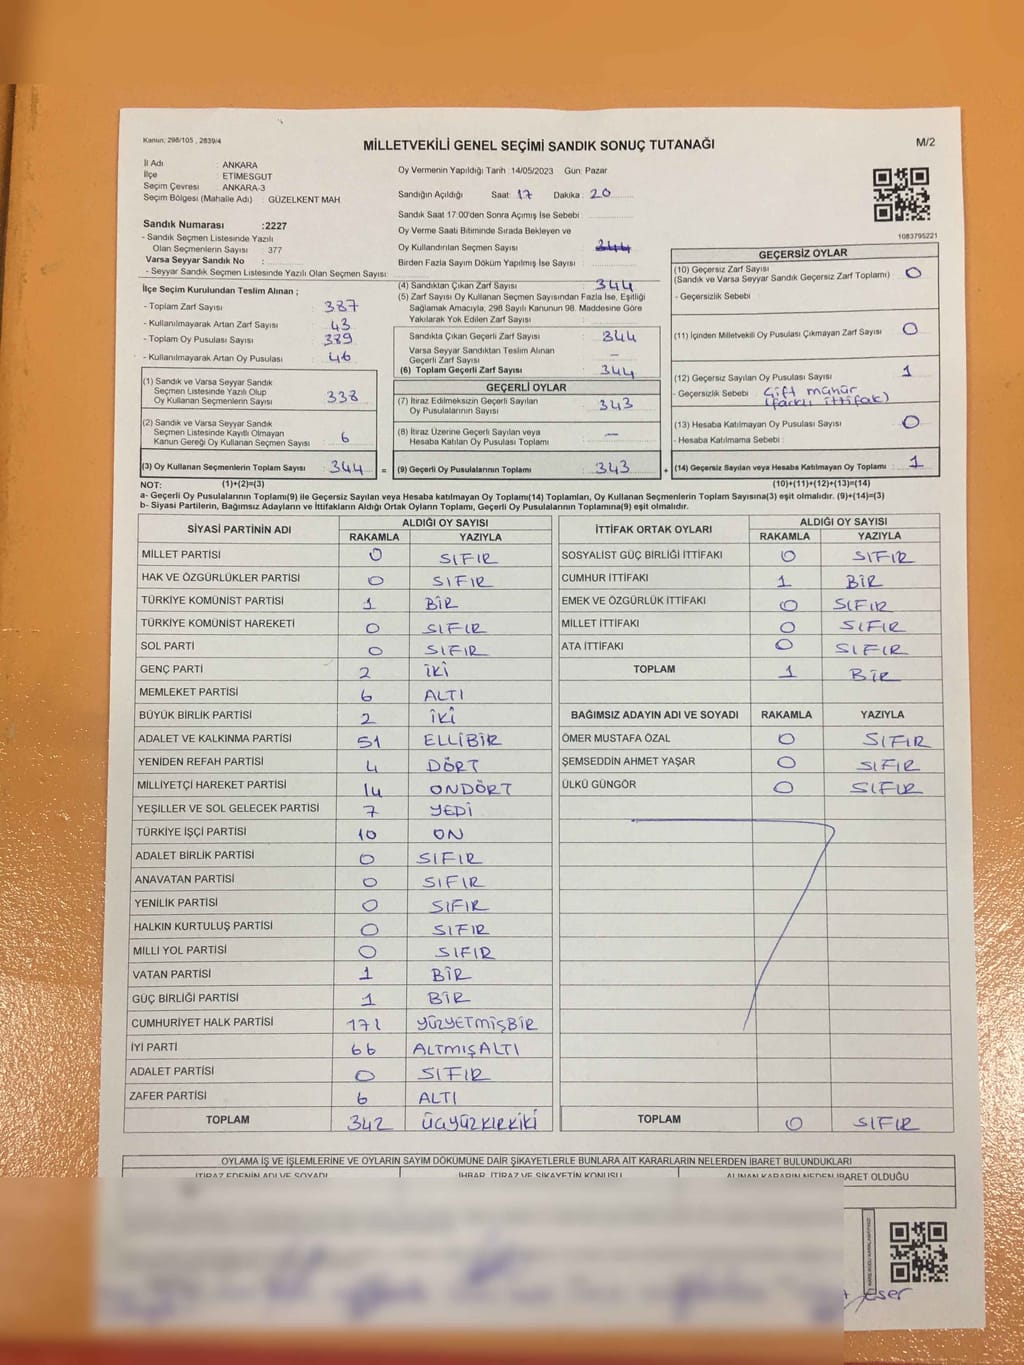 Kanun; 298/105 , 2839/4
MİLLETVEKİLİ GENEL SEÇİMİ SANDIK SONUÇ TUTANAĞI
M/2
İl Adı : ANKARA
İlçe : ETİMESGUT
Seçim Çevresi : ANKARA-3
Seçim Bölgesi (Mahalle Adı) : GÜZELKENT MAH
Oy Vermenin Yapıldığı Tarih :14/05/2023 Gün: Pazar
Sandığın Açıldığı Saat: 17 Dakika: 20
Sandık Saat 17:00'den Sonra Açılmış İse Sebebi :
Oy Verme Saati Bitiminde Sırada Bekleyen ve
Oy Kullandırılan Seçmen Sayısı : 344
Birden Fazla Sayım Döküm Yapılmış İse Sayısı :
1083795221
Sandık Numarası :2227
- Sandık Seçmen Listesinde Yazılı
Olan Seçmenlerin Sayısı : 377
Varsa Seyyar Sandık No :
- Seyyar Sandık Seçmen Listesinde Yazılı Olan Seçmen Sayısı:
İlçe Seçim Kurulundan Teslim Alınan ;
- Toplam Zarf Sayısı : 387
- Kullanılmayarak Artan Zarf Sayısı : 43
- Toplam Oy Pusulası Sayısı : 389
- Kullanılmayarak Artan Oy Pusulası : 46
(1) Sandık ve Varsa Seyyar Sandık
Seçmen Listesinde Yazılı Olup
Oy Kullanan Seçmenlerin Sayısı : 338
(2) Sandık ve Varsa Seyyar Sandık
Seçmen Listesinde Kayıtlı Olmayan
Kanun Gereği Oy Kullanan Seçmen Sayısı : 6
(3) Oy Kullanan Seçmenlerin Toplam Sayısı : 344 =
(4) Sandıktan Çıkan Zarf Sayısı : 344
(5) Zarf Sayısı Oy Kullanan Seçmen Sayısından Fazla İse, Eşitliği
Sağlamak Amacıyla, 298 Sayılı Kanunun 98. Maddesine Göre
Yakılarak Yok Edilen Zarf Sayısı :
Sandıkta Çıkan Geçerli Zarf Sayısı : 344
Varsa Seyyar Sandıktan Teslim Alınan
Geçerli Zarf Sayısı : –
(6) Toplam Geçerli Zarf Sayısı : 344
GEÇERLİ OYLAR
(7) İtiraz Edilmeksizin Geçerli Sayılan
Oy Pusulalarının Sayısı : 343
(8) İtiraz Üzerine Geçerli Sayılan veya
Hesaba Katılan Oy Pusulası Toplamı : –
(9) Geçerli Oy Pusulalarının Toplamı : 343 +
GEÇERSİZ OYLAR
(10) Geçersiz Zarf Sayısı
(Sandık ve Varsa Seyyar Sandık Geçersiz Zarf Toplamı) : 0
- Geçersizlik Sebebi :
(11) İçinden Milletvekili Oy Pusulası Çıkmayan Zarf Sayısı : 0
(12) Geçersiz Sayılan Oy Pusulası Sayısı : 1
- Geçersizlik Sebebi : Çift mühür
(farklı ittifak)
(13) Hesaba Katılmayan Oy Pusulası Sayısı : 0
- Hesaba Katılmama Sebebi :
(14) Geçersiz Sayılan veya Hesaba Katılmayan Oy Toplamı : 1
NOT: (1)+(2)=(3) (10)+(11)+(12)+(13)=(14)
a- Geçerli Oy Pusulalarının Toplamı(9) ile Geçersiz Sayılan veya Hesaba katılmayan Oy Toplamı(14) Toplamları, Oy Kullanan Seçmenlerin Toplam Sayısına(3) eşit olmalıdır. (9)+(14)=(3)
b- Siyasi Partilerin, Bağımsız Adayların ve İttifakların Aldığı Ortak Oyların Toplamı, Geçerli Oy Pusulalarının Toplamına(9) eşit olmalıdır.
SİYASİ PARTİNİN ADI ALDIĞI OY SAYISI
RAKAMLA YAZIYLA
MİLLET PARTİSİ 0 SIFIR
HAK VE ÖZGÜRLÜKLER PARTİSİ 0 SIFIR
TÜRKİYE KOMÜNİST PARTİSİ 1 BİR
TÜRKİYE KOMÜNİST HAREKETİ 0 SIFIR
SOL PARTİ 0 SIFIR
GENÇ PARTİ 2 İKİ
MEMLEKET PARTİSİ 6 ALTI
BÜYÜK BİRLİK PARTİSİ 2 İKİ
ADALET VE KALKINMA PARTİSİ 51 ELLİBİR
YENİDEN REFAH PARTİSİ 4 DÖRT
MİLLİYETÇİ HAREKET PARTİSİ 14 ONDÖRT
YEŞİLLER VE SOL GELECEK PARTİSİ 7 YEDİ
TÜRKİYE İŞÇİ PARTİSİ 10 ON
ADALET BİRLİK PARTİSİ 0 SIFIR
ANAVATAN PARTİSİ 0 SIFIR
YENİLİK PARTİSİ 0 SIFIR
HALKIN KURTULUŞ PARTİSİ 0 SIFIR
MİLLİ YOL PARTİSİ 0 SIFIR
VATAN PARTİSİ 1 BİR
GÜÇ BİRLİĞİ PARTİSİ 1 BİR
CUMHURİYET HALK PARTİSİ 171 YÜZYETMİŞBİR
İYİ PARTİ 66 ALTMIŞALTI
ADALET PARTİSİ 0 SIFIR
ZAFER PARTİSİ 6 ALTI
TOPLAM 342 ÜÇYÜZKIRKİKİ
İTTİFAK ORTAK OYLARI ALDIĞI OY SAYISI
RAKAMLA YAZIYLA
SOSYALİST GÜÇ BİRLİĞİ İTTİFAKI 0 SIFIR
CUMHUR İTTİFAKI 1 BİR
EMEK VE ÖZGÜRLÜK İTTİFAKI 0 SIFIR
MİLLET İTTİFAKI 0 SIFIR
ATA İTTİFAKI 0 SIFIR
TOPLAM 1 BİR
BAĞIMSIZ ADAYIN ADI VE SOYADI RAKAMLA YAZIYLA
ÖMER MUSTAFA ÖZAL 0 SIFIR
ŞEMSEDDİN AHMET YAŞAR 0 SIFIR
ÜLKÜ GÜNGÖR 0 SIFIR
TOPLAM 0 SIFIR
OYLAMA İŞ VE İŞLEMLERİNE VE OYLARIN SAYIM DÖKÜMÜNE DAİR ŞİKAYETLERLE BUNLARA AİT KARARLARIN NELERDEN İBARET BULUNDUKLARI
İTİRAZ EDENİN ADI VE SOYADI İHBAR, İTİRAZ VE ŞİKAYETİN KONUSU ALINAN KARARIN NEDEN İBARET OLDUĞU
Eser